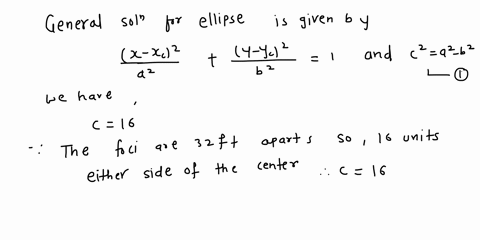 General solⁿ for ellipse is given by
(x-x_c)²/a² + (y-y_c)²/b² = 1 and c²=a²-b²
①
we have,
c = 16
∵ The foci are 32ft aparts so, 16 units
either side of the center ∴ c = 16